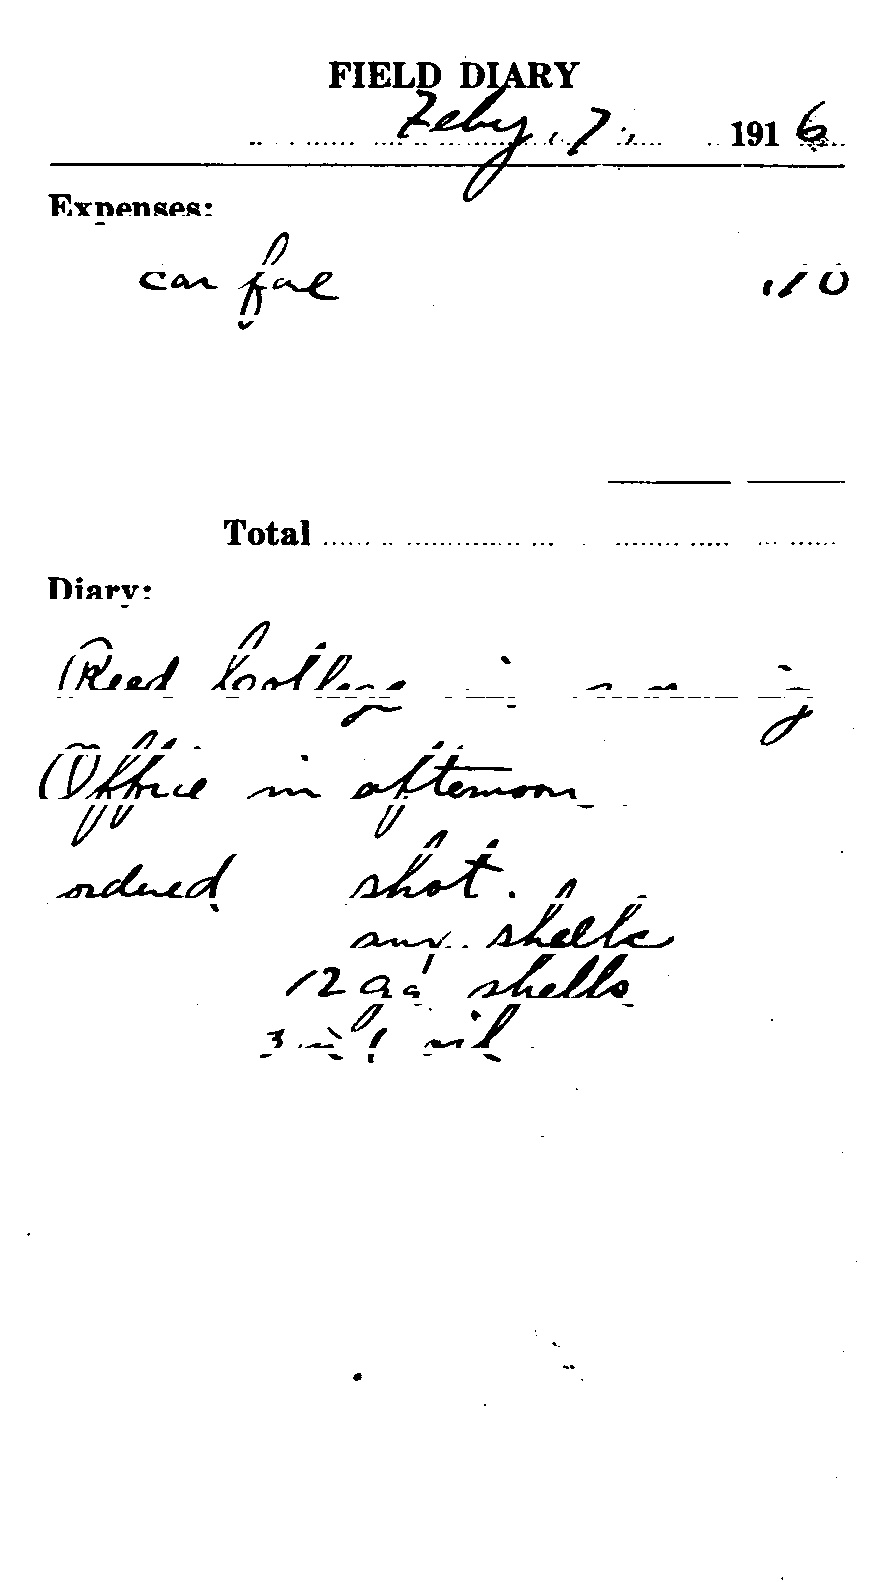 FIELD DIARY
Feby. 7, 1916
Expenses:
car fare .10
Total
Diary:
Reed College in morning
Office in afternoon
ordered shot.
aux. shells
12 ga shells
oil